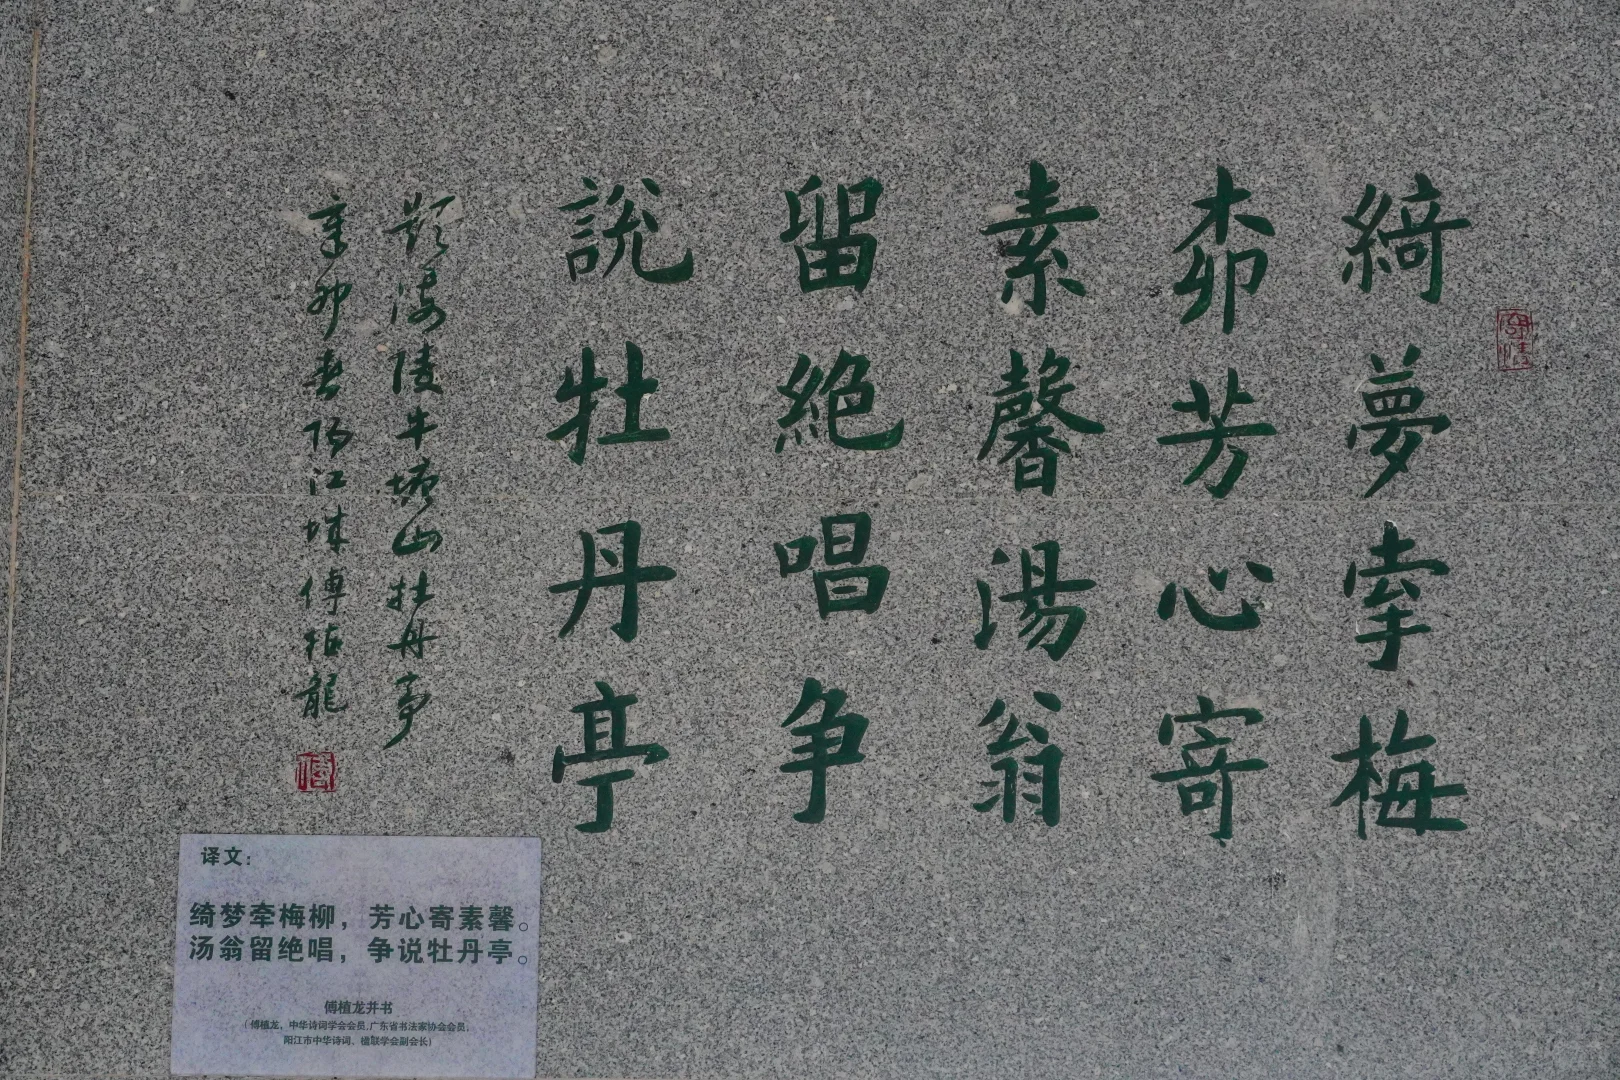 綺夢牽梅
桺芳心寄
素馨湯翁
留絕唱争
說牡丹亭
题海陵牛塘山牡丹亭
辛卯春阳江城傅植龍
译文：
绮梦牵梅柳，芳心寄素馨。
汤翁留绝唱，争说牡丹亭。
傅植龙并书
（傅植龙，中华诗词学会会员，广东省书法家协会会员，
阳江市中华诗词、楹联学会副会长）